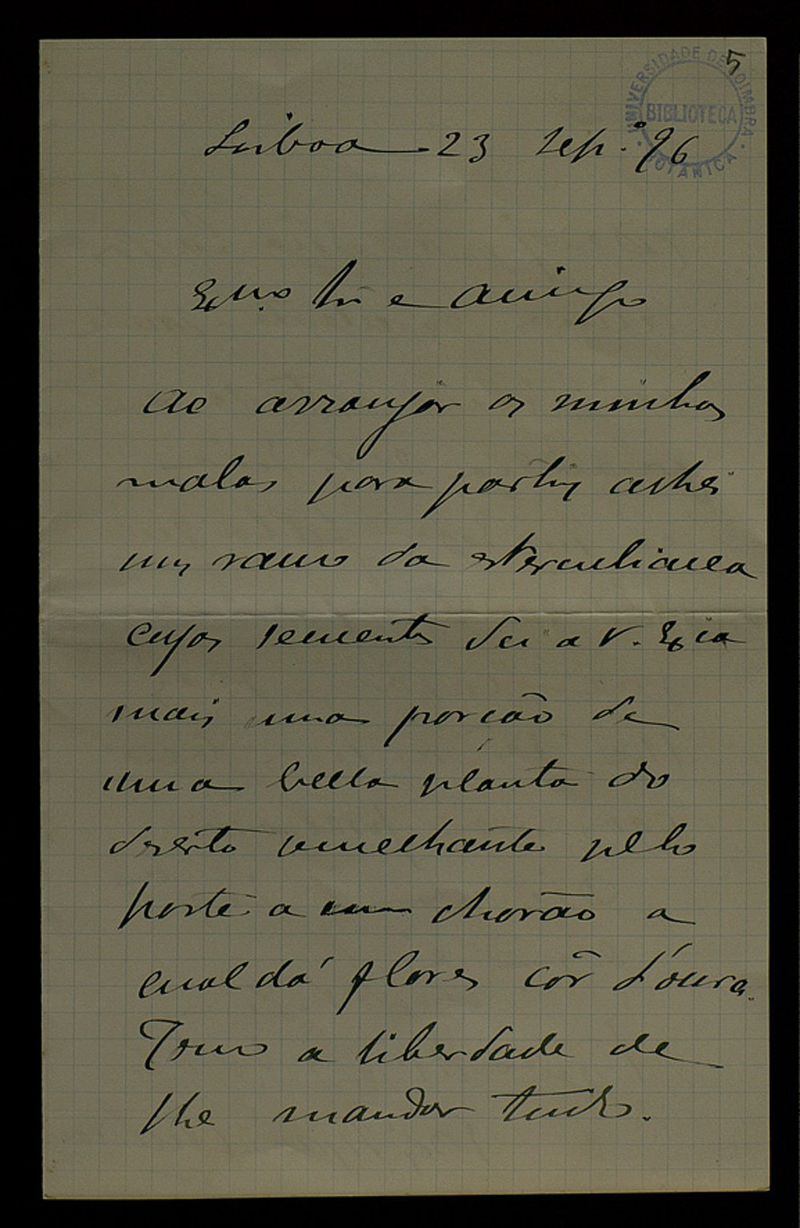 5
UNIVERSIDADE DE COIMBRA
BIBLIOTECA
BOTANICA
Lisboa 23 sepº. 96
Exmo. Sr e amigo
Ao arranjar as minhas
malas para partir achei
um ramo da sterculiacea
cujas sementes dei a V. Excia
mais uma porção de
uma bella planta do
deserto semelhante pelo
porte a um chorão a
qual dá flores côr d'oura.
Tomo a liberdade de
lhe mandar tudo.